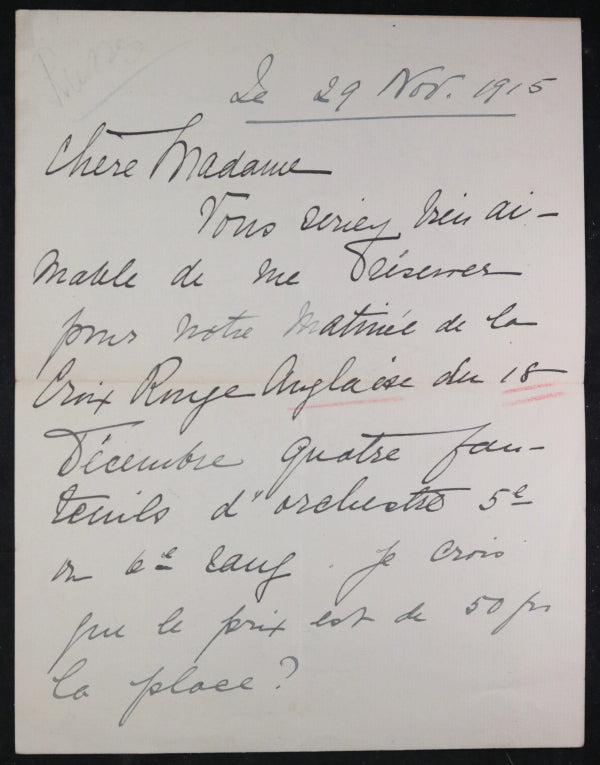 Le 29 Nov. 1915
Chère Madame
Vous seriez bien ai-
mable de me réserver
pour notre Matinée de la
Croix Rouge Anglaise du 18
Décembre quatre fau-
teuils d'orchestre 5e
ou 6e rang. Je crois
que le prix est de 50 frs
la place?